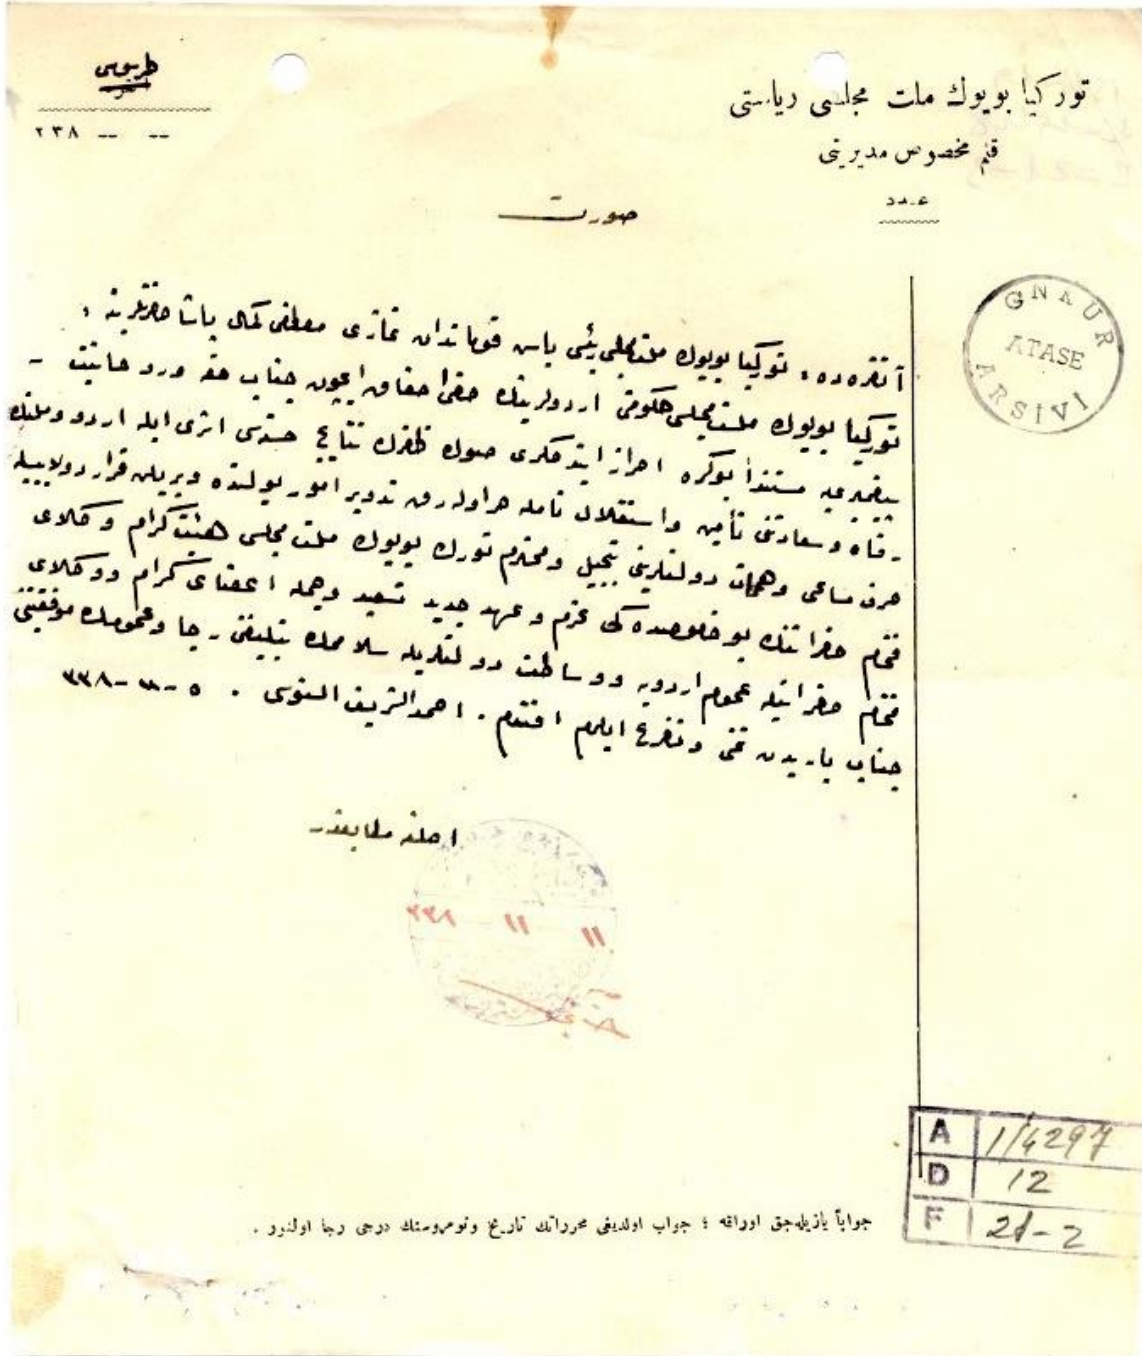 توركيا بويوك ملت مجلسى رياستى
قلم مخصوص مديريتى
عدد
طربوس
٢٣٨ -- --
صورت
GNKUR
ATASE
ARŞİVİ
آنقره ده، توركيا بويوك ملت مجلسى رئيسى باش قوماندان غازى مصطفى كمال پاشا حضرتلرينه،
توركيا بويوك ملت مجلسى حكومتى اردولرينك حقى احقاق ايچون جناب حقه و روحانيت
پيغمبرى يه مستنداً بوكره احراز ايتدكلرى صوك ظفرك نتايج حسنه سى اثرى ايله اردو وملتك
رفاه وسعادتنى تأمين واستقلال تامله حر اوله رق تدوير امور يولنده ويريلن قرار دولاييسيله
صرف مساعى وهمات دولتلرينى تبجيل ومحترم تورك بويوك ملت مجلسى هيئت كرام و وكلاى
فخام حضراتنك بو خصوصده كى عزم و عهد جديد تسعيد وجمله اعضاى كرام ووكلاى
فخام حضراتيله عموم اردويه ووساطت دولتلريله سلاممك تبليغنى رجا وعمومك موفقيتنى
جناب باريدن تمنى وتضرع ايلرم افندم. احمد الشريف السنوسى . ٥-٣-٣٣٨
اصلنه مطابقدر
١١ ١١ ٣٣٨
A 1/4297
D 12
F 21-2
جواباً يازيله جق اوراقه ؛ جواب اولديغى محرراتك تاريخ ونومروسنك درجى رجا اولنور .